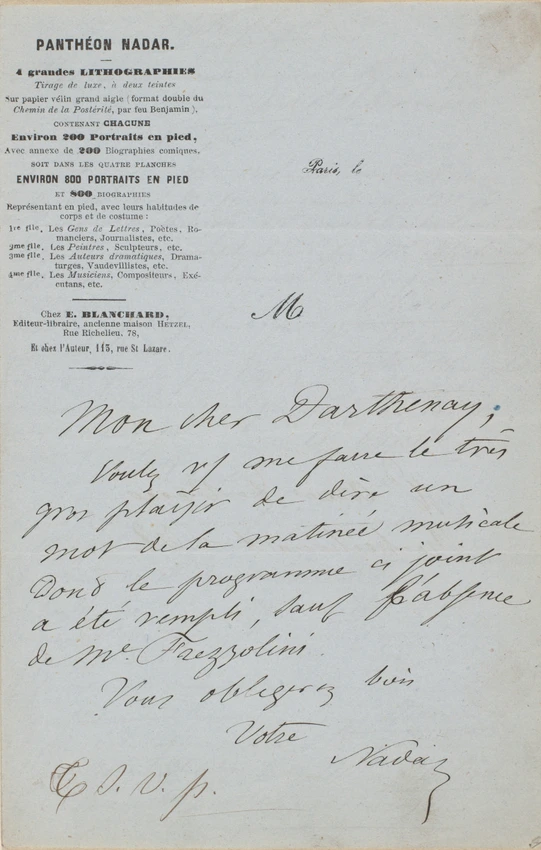 PANTHÉON NADAR.
4 grandes LITHOGRAPHIES
Tirage de luxe, à deux teintes
Sur papier vélin grand aigle (format double du
Chemin de la Postérité, par feu Benjamin),
CONTENANT CHACUNE
Environ 200 Portraits en pied,
Avec annexe de 200 Biographies comiques,
SOIT DANS LES QUATRE PLANCHES
ENVIRON 800 PORTRAITS EN PIED
ET 800 BIOGRAPHIES
Représentant en pied, avec leurs habitudes de
corps et de costume :
1re flle. Les Gens de Lettres, Poëtes, Ro-
manciers, Journalistes, etc.
2me flle. Les Peintres, Sculpteurs, etc.
3me flle. Les Auteurs dramatiques, Drama-
turges, Vaudevillistes, etc.
4me flle. Les Musiciens, Compositeurs, Exé-
cutans, etc.
Chez E. BLANCHARD,
Editeur-libraire, ancienne maison HETZEL,
Rue Richelieu, 78,
Et chez l'Auteur, 113, rue St Lazare.
Paris, le
M
Mon cher Darthenay,
Voulez vs me faire le très
gros plaisir de dire un
mot de la matinée musicale
Dont le programme ci joint
a été rempli, sauf l'absence
de Me Frezzolini.
Vous obligerez bien
Votre
Nadar
T. S. V. p.